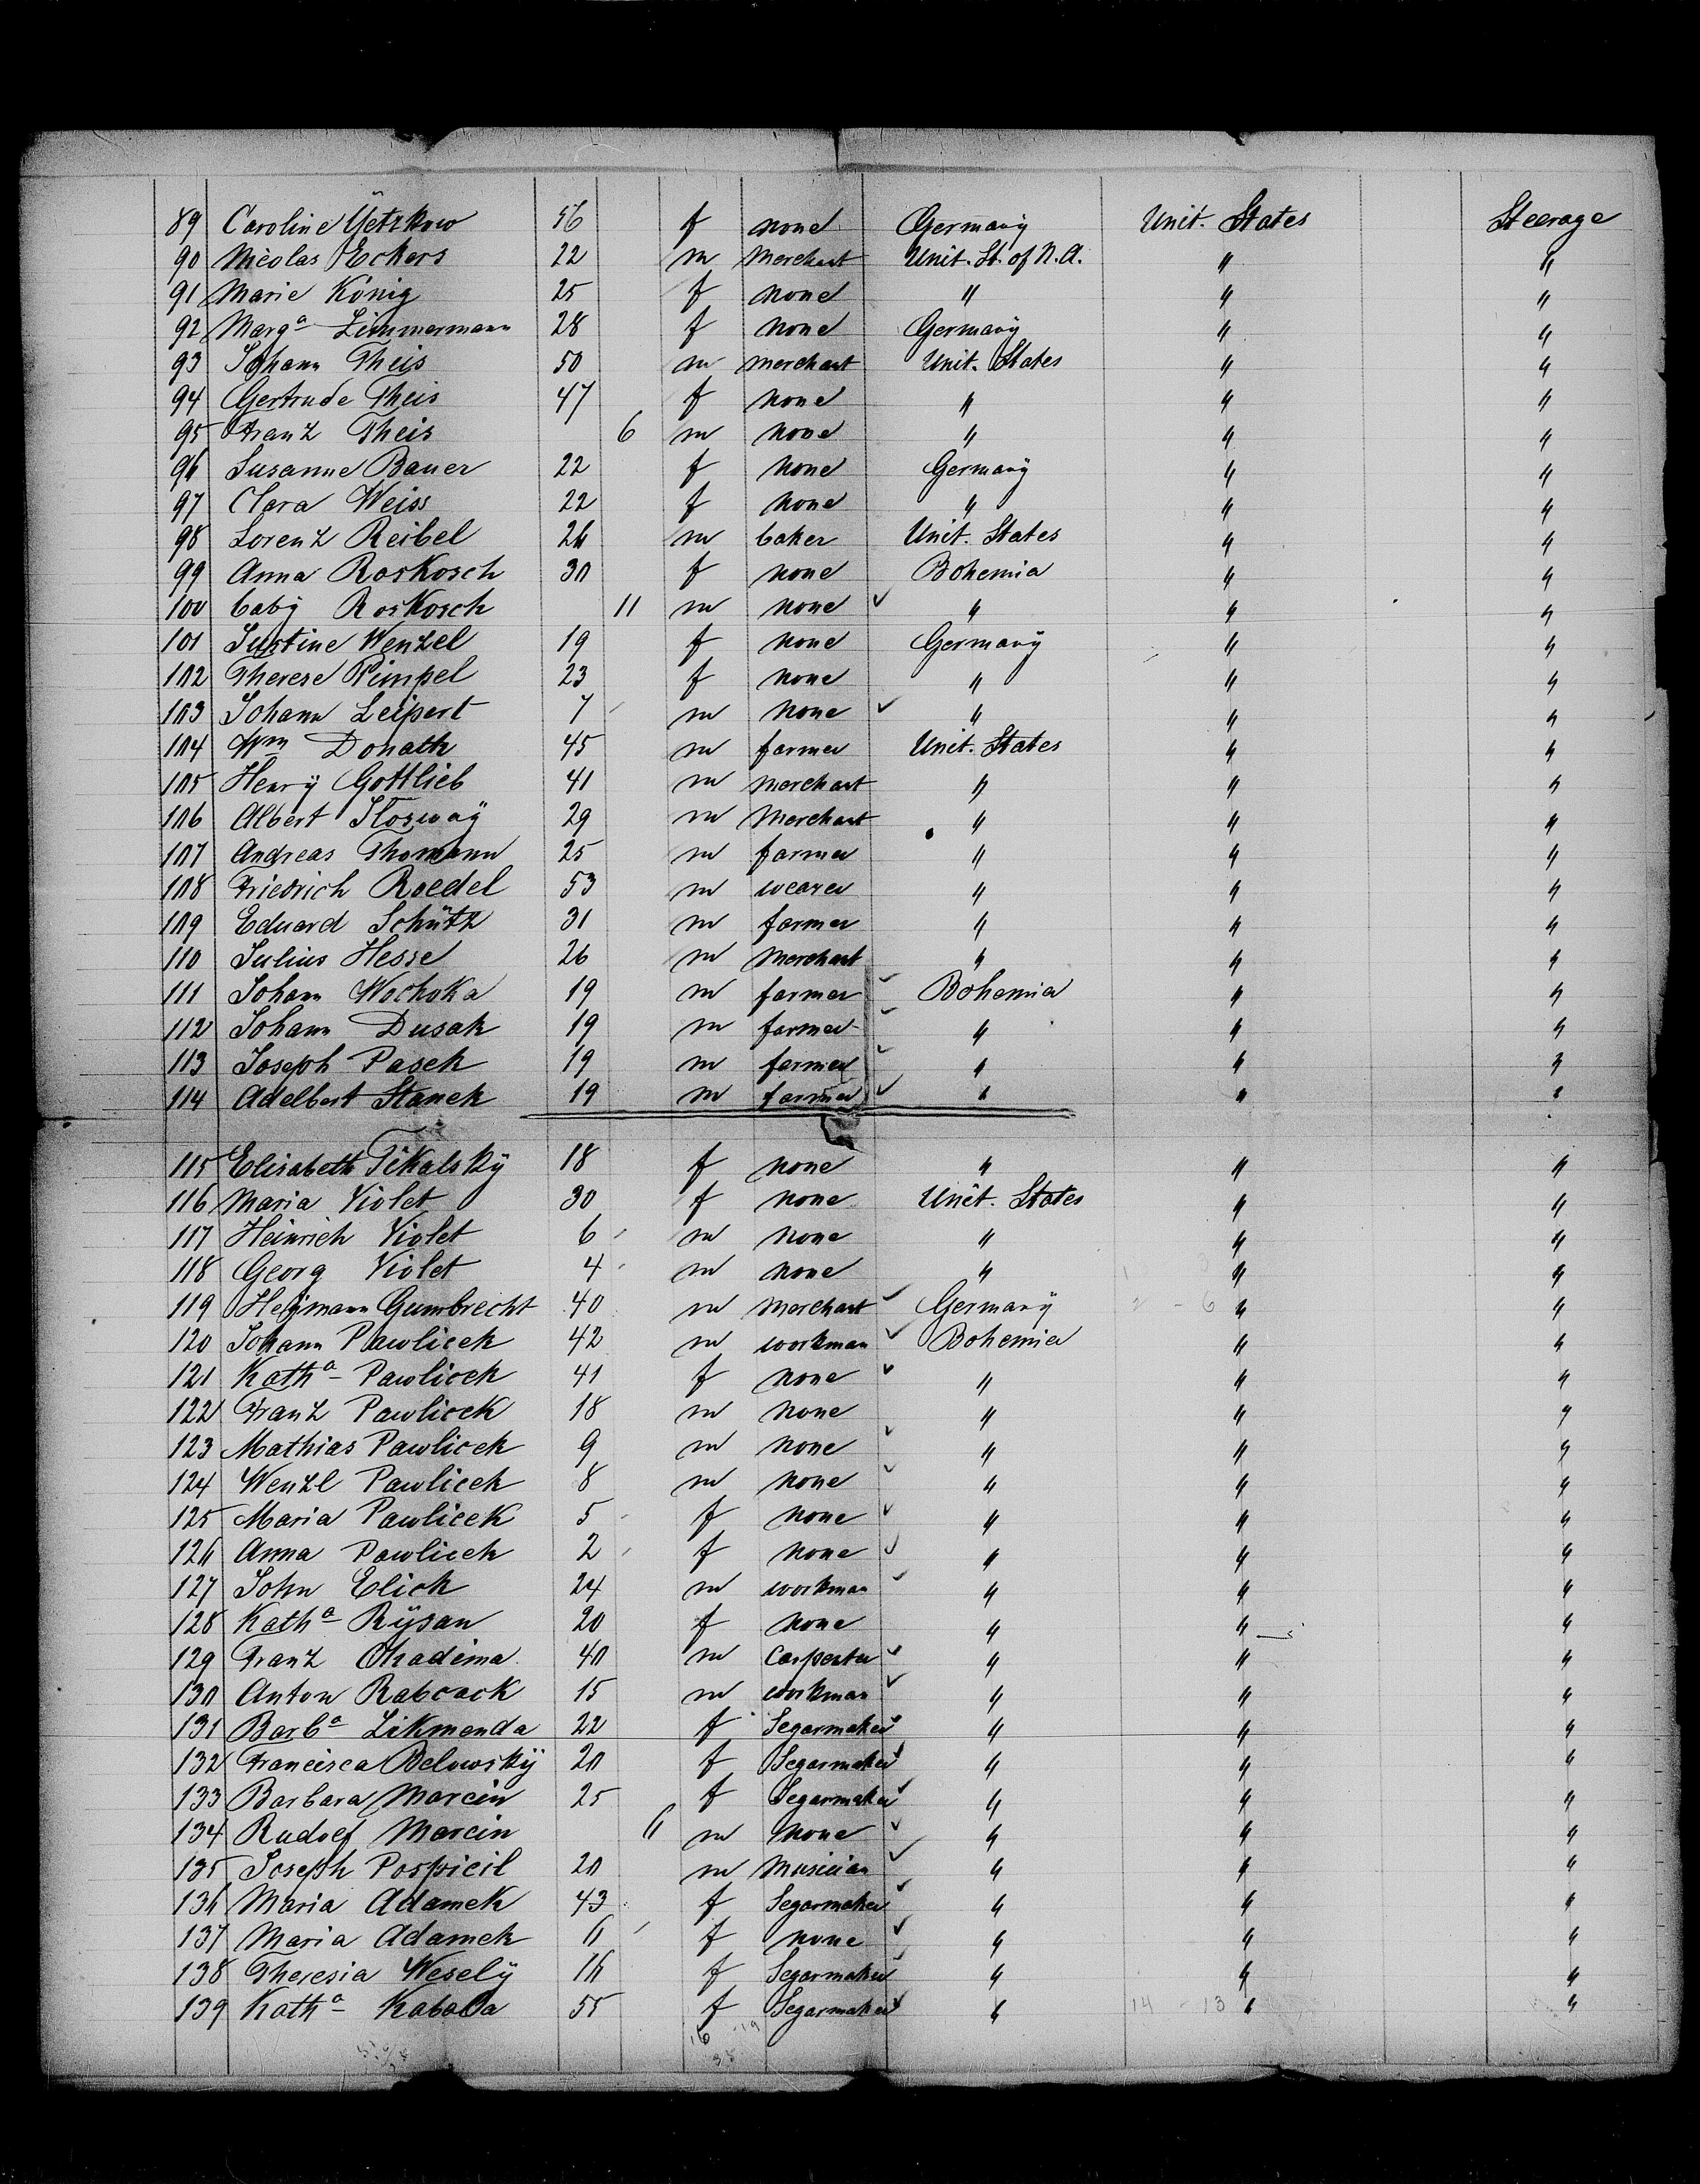 89 Caroline Üetzkow 56 f none Germany Unit. States Steerage
90 Nicolas Eckers 22 m Merchant Unit. St. of N.A. " "
91 Marie König 25 f none " " "
92 Marga Zimmermann 28 f none Germany " "
93 Johann Theis 50 m merchant Unit. States " "
94 Gertrude Theis 47 f none " " "
95 Franz Theis 6 m none " " "
96 Susanne Bauer 22 f none Germany " "
97 Clara Weiss 22 f none " " "
98 Lorenz Reibel 26 m baker Unit. States " "
99 Anna Roskosch 30 f none Bohemia " "
100 baby Roskosch 11 m none " " "
101 Justine Wenzel 19 f none Germany " "
102 Therese Pimpel 23 f none " " "
103 Johann Leipert 7 m none " " "
104 Wm Donath 45 m farmer Unit. States " "
105 Henry Gottlieb 41 m merchant " " "
106 Albert 29 m Merchant " " "
107 Andreas Thomann 25 m farmer " " "
108 Friedrich Roedel 53 m weaver " " "
109 Eduard Schütz 31 m farmer " " "
110 Julius Hesse 26 m Merchant " " "
111 Johann Wochoka 19 m farmer Bohemia " "
112 Johann Dusak 19 m farmer " " "
113 Joseph Pasek 19 m farmer " " "
114 Adelbert Stanek 19 m farmer " " "
115 Elisabeth Tikalsky 18 f none " " "
116 Maria Violet 30 f none Unit. States " "
117 Heinrich Violet 6 m none " " "
118 Georg Violet 4 m none " " "
119 Heymann Gumbrecht 40 m Merchant Germany " "
120 Johann Pawlicek 42 m workman Bohemia " "
121 Katha Pawlicek 41 f none " " "
122 Franz Pawlicek 18 m none " " "
123 Mathias Pawlicek 9 m none " " "
124 Wenzl Pawlicek 8 m none " " "
125 Maria Pawlicek 5 f none " " "
126 Anna Pawlicek 2 f none " " "
127 John Elick 24 m workman " " "
128 Katha Rysan 20 f none " " "
129 Franz Chadima 40 m Carpenter " " "
130 Anton Rabcack 15 m workman " " "
131 Barba Likmenda 22 f Segarmaker " " "
132 Francisca Belowsky 20 f Segarmaker " " "
133 Barbara Marcin 25 f Segarmaker " " "
134 Rudolf Marcin 11 m none " " "
135 Joseph Pospicil 20 m Musician " " "
136 Maria Adamek 43 f Segarmaker " " "
137 Maria Adamek 6 f none " " "
138 Theresia Wesely 16 f Segarmaker " " "
139 Katha Kabala 55 f Segarmaker " " "
14 - 13
16 - 19